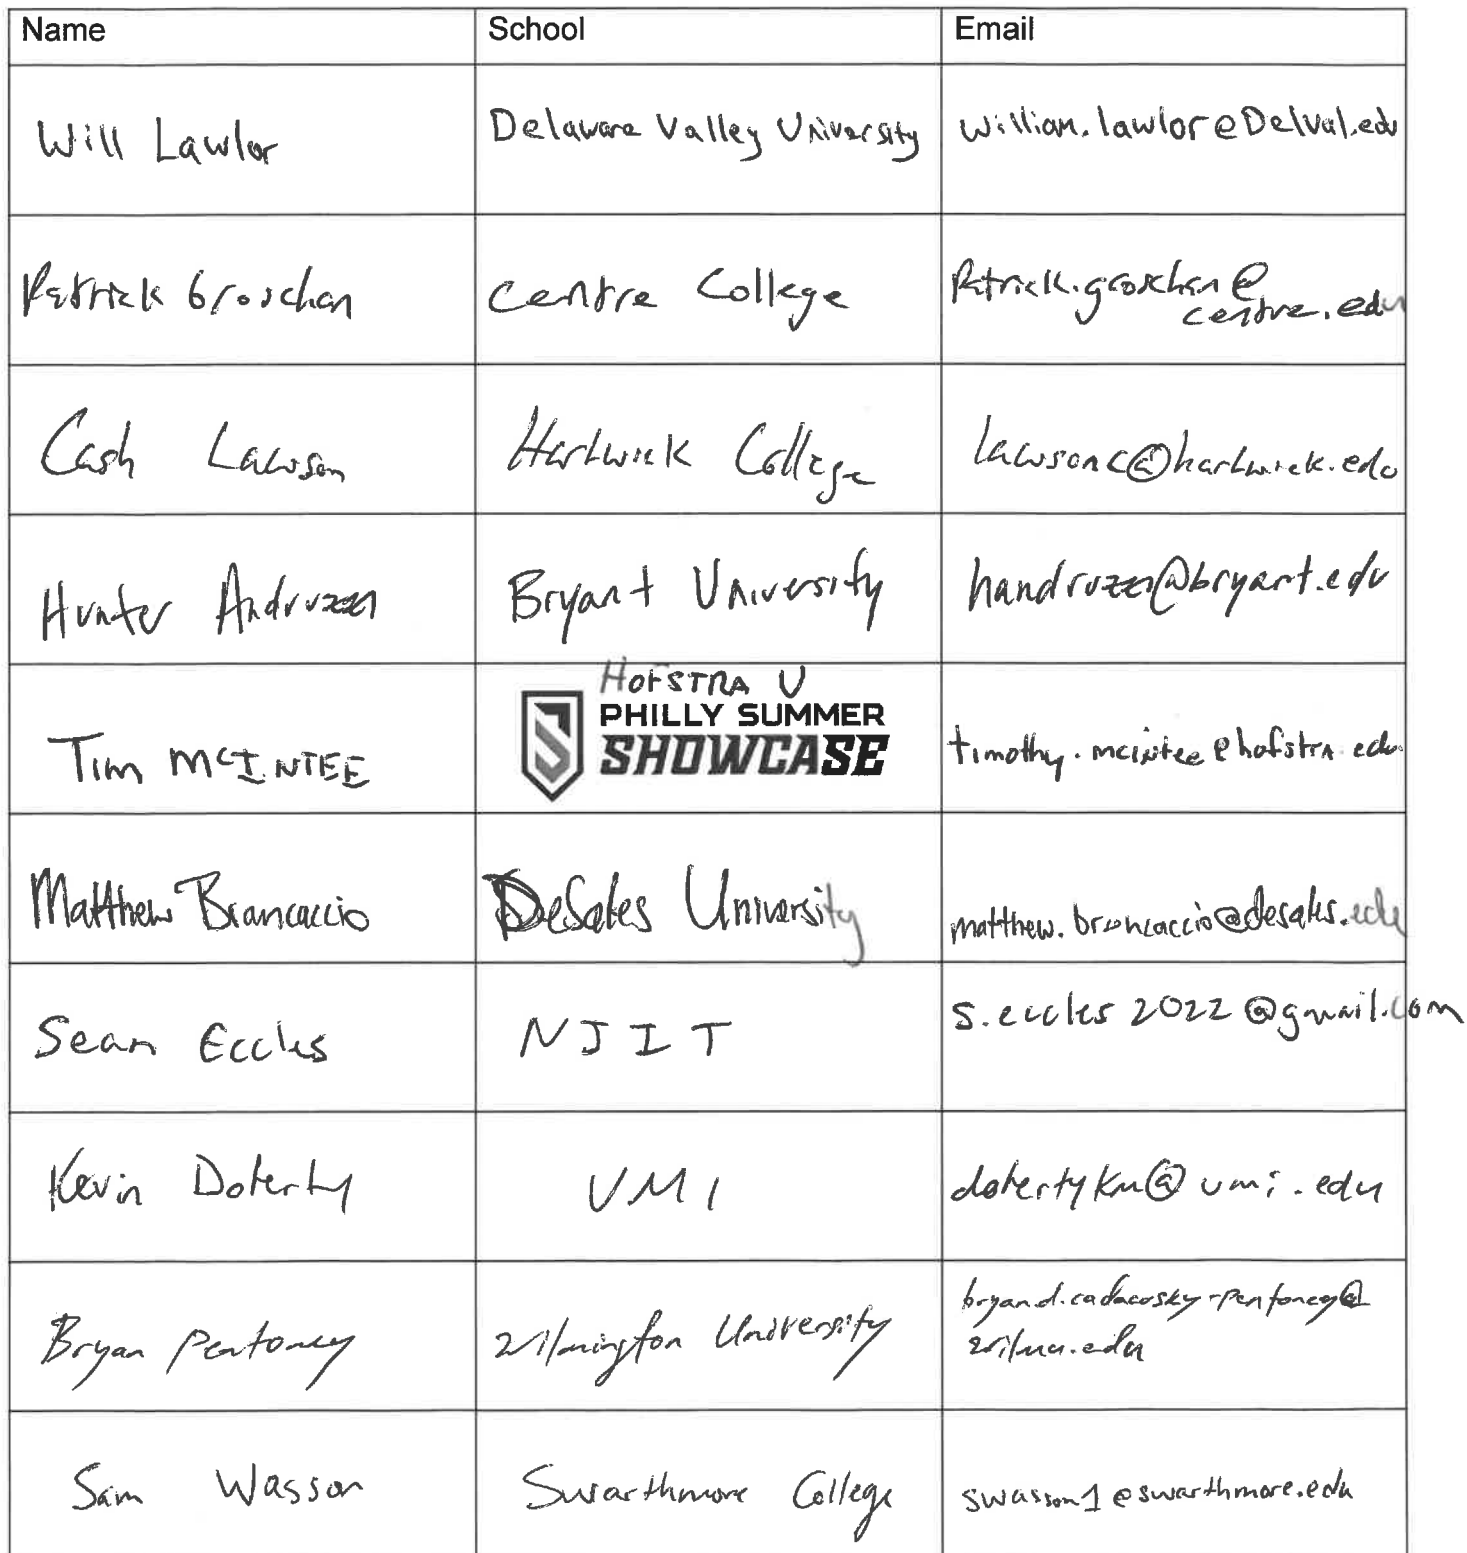 Name School Email
Will Lawlor Delaware Valley University william.lawlor@Delval.edu
Patrick Groschan Centre College Patrick.groschan@
centre.edu
Cash Lawson Hartwick College lawsonc@hartwick.edu
Hunter Andruzzi Bryant University handruzzi@bryant.edu
HOFSTRA U
PHILLY SUMMER
Tim McINTEE SHOWCASE timothy.mcintee@hofstra.edu
Matthew Brancaccio DeSales University matthew.brancaccio@desales.edu
Sean Eccles NJIT s.eccles2022@gmail.com
Kevin Doherty VMI dohertykm@vmi.edu
bryan.d.cadacosky-pentoney@
Bryan Pentoney Wilmington University wilmu.edu
Sam Wasson Swarthmore College swasson1@swarthmore.edu